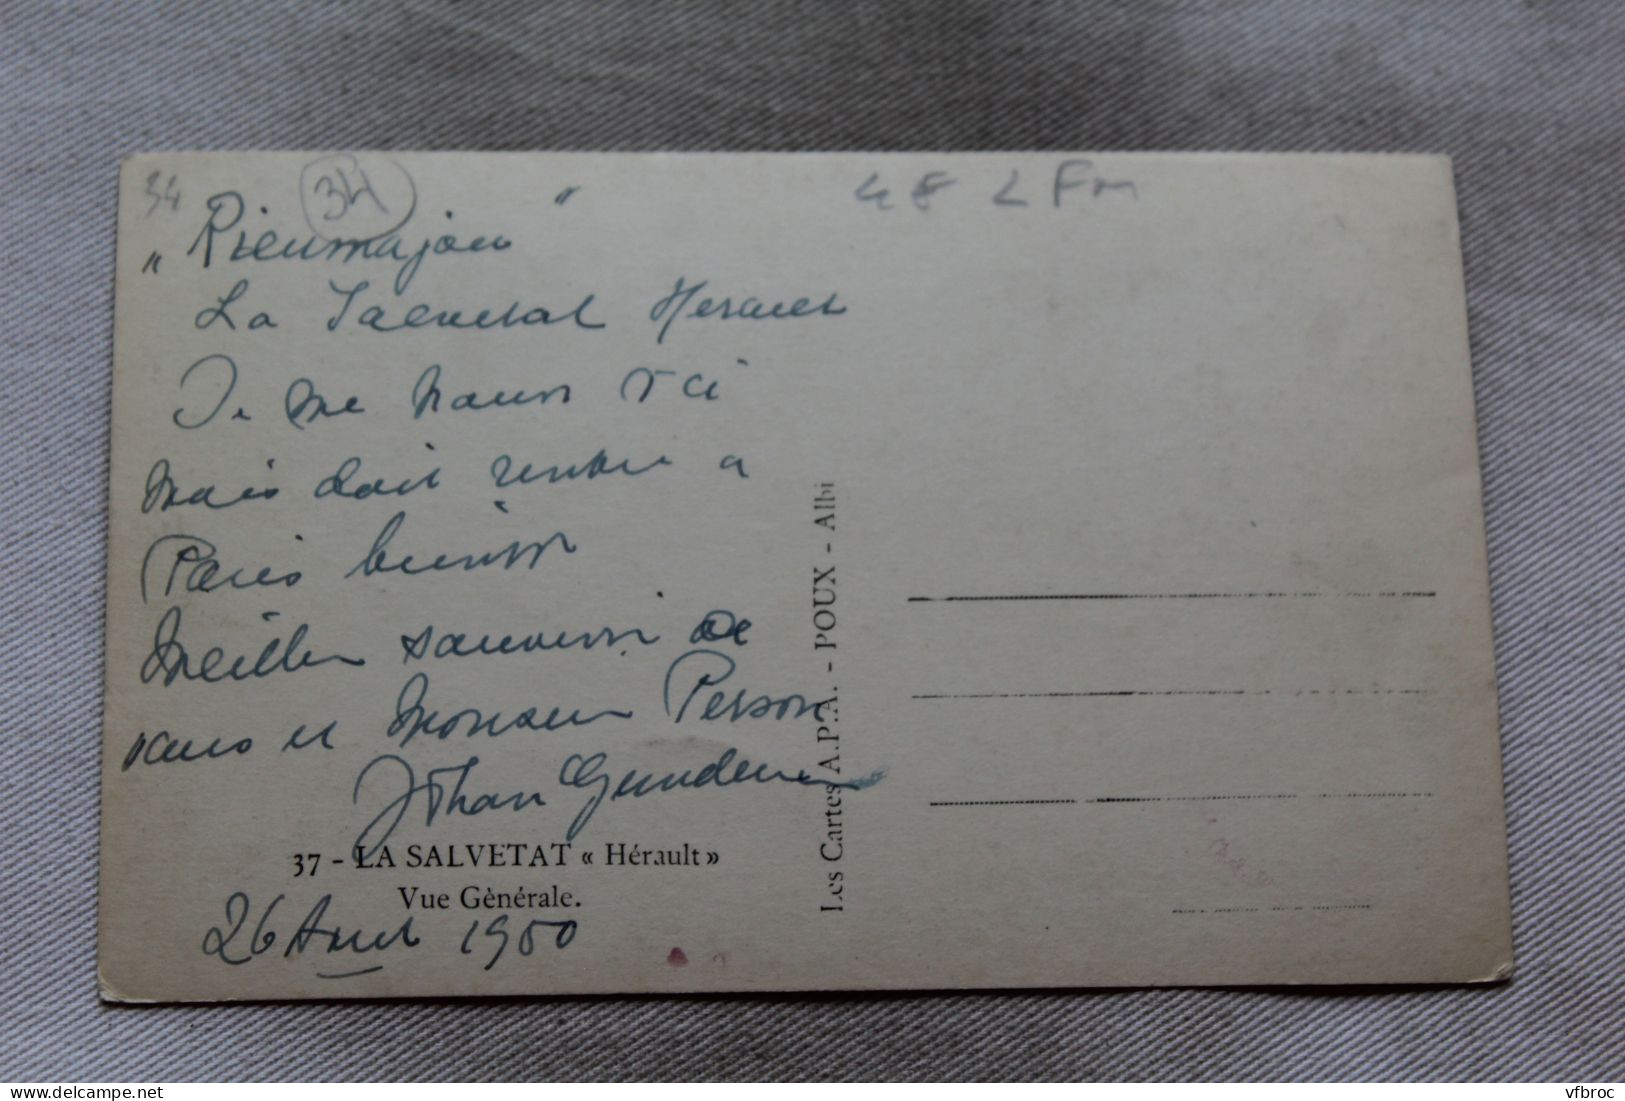 34
34
48 L Fm
" Rieumajou "
La Salvetat Herault
Je me trouve ici
mais doit rentrer a
Paris
Meilleur souvenir de
vous et Monsieur Person
Johan
37 - LA SALVETAT « Hérault »
Vue Gènérale.
26 Aout 1950
Les Cartes A.P.A. - POUX - Albi
delcampe.net
vfbroc